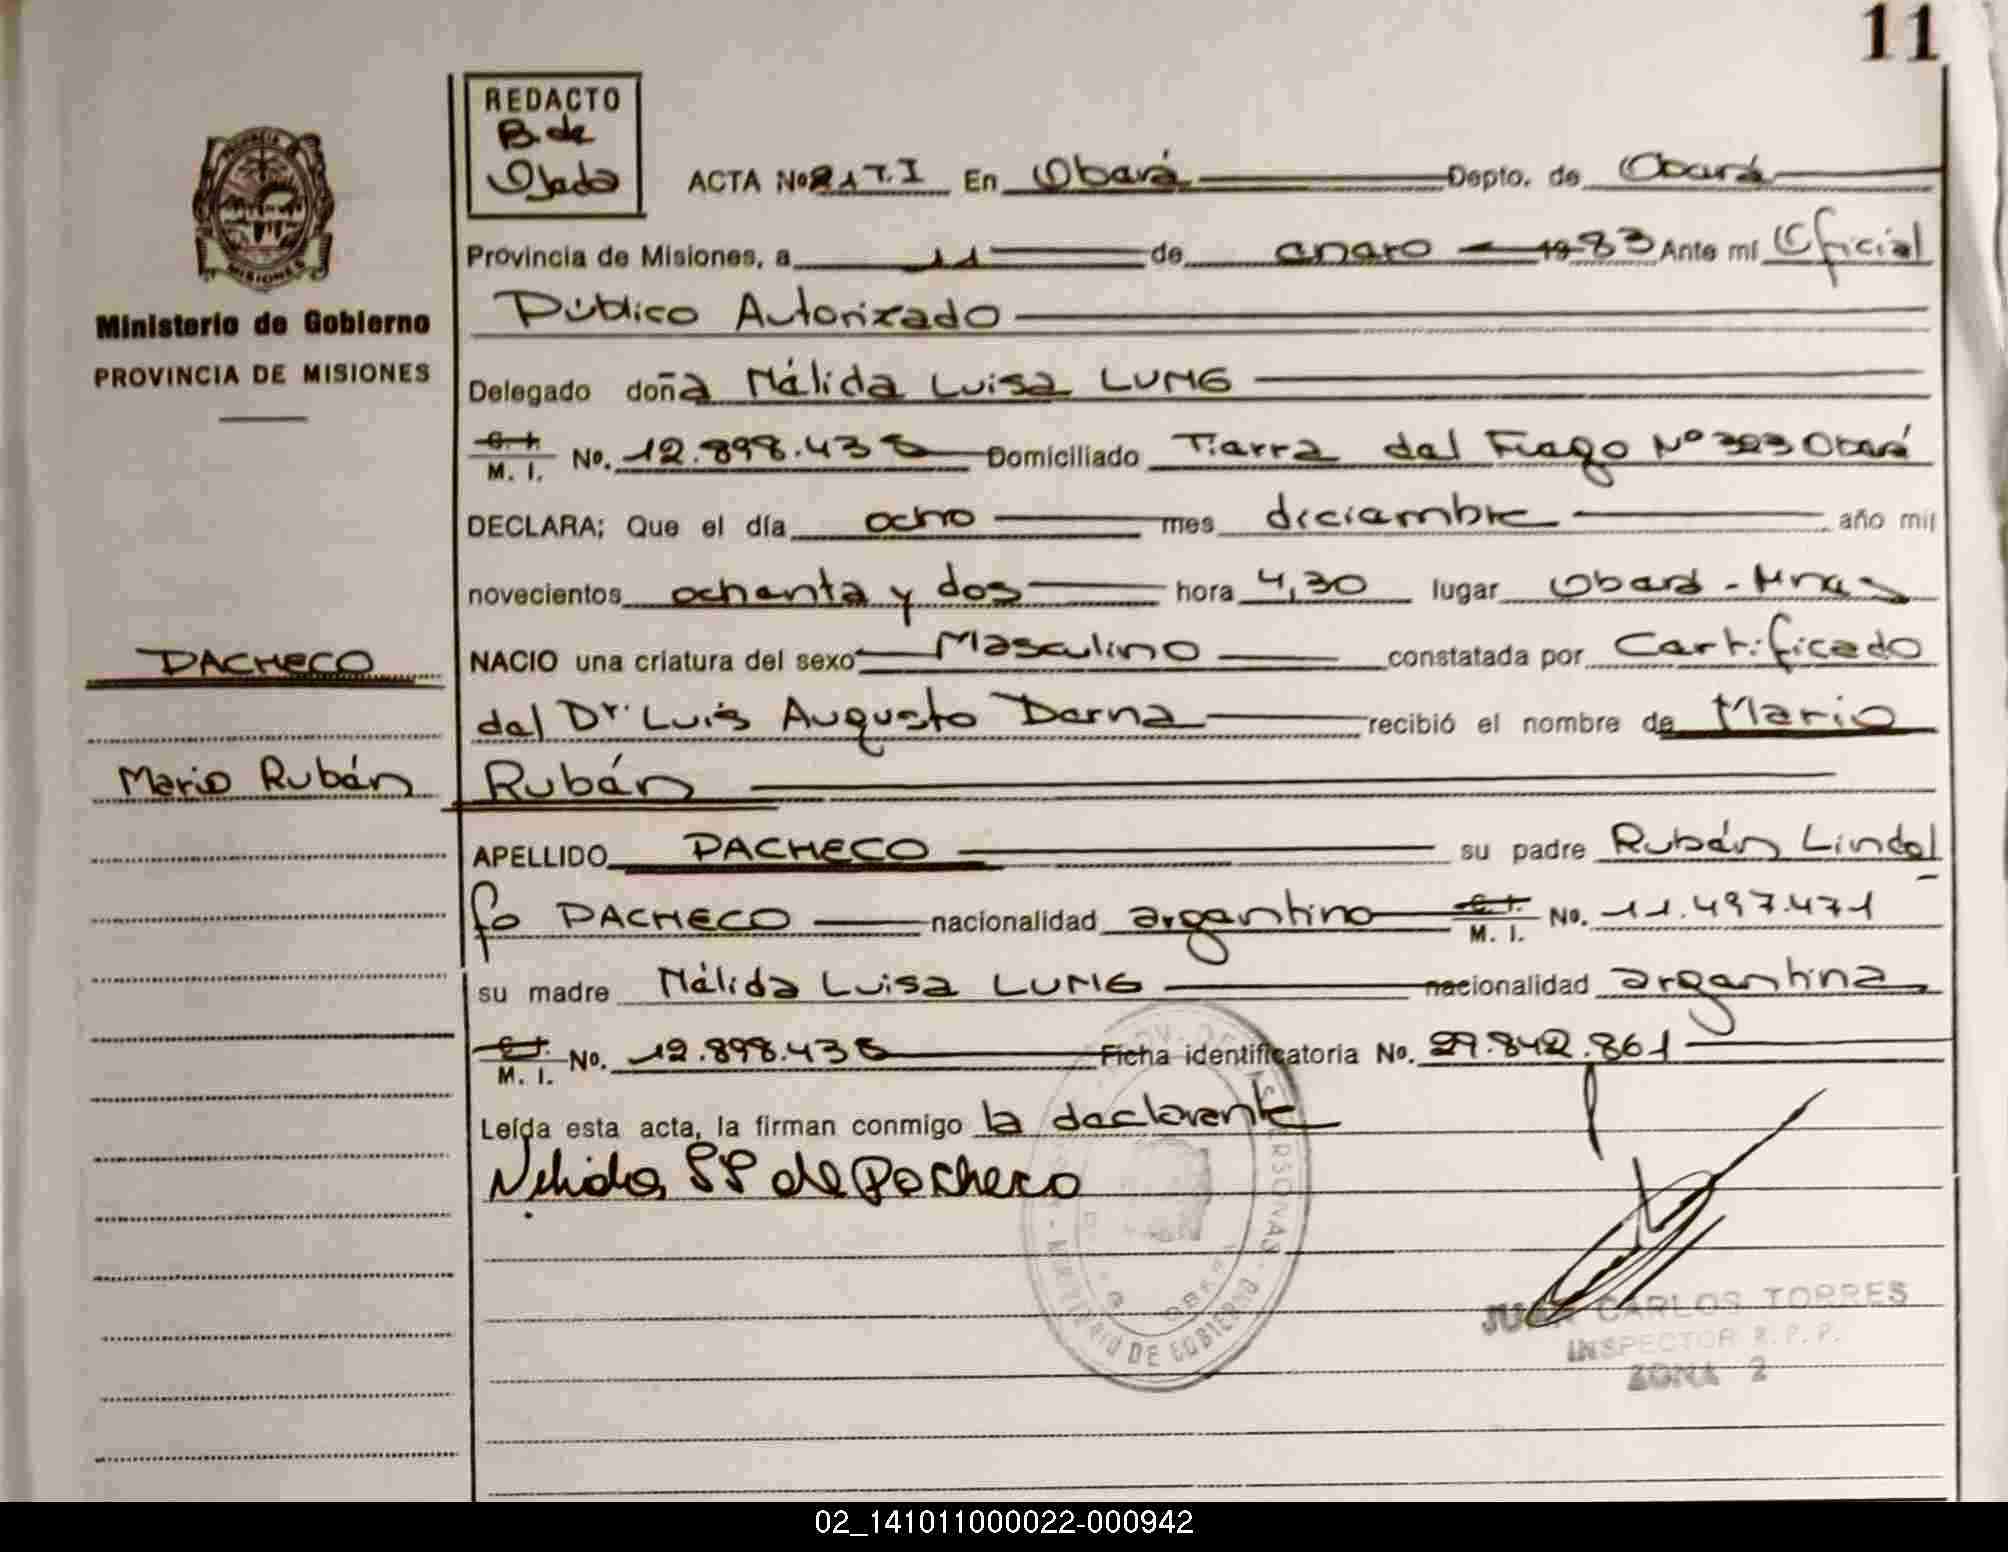 11
REDACTO
B. de
Ojeda
ACTA No 21 T.I En Oberá Depto. de Oberá
Provincia de Misiones, a 11 de enero 1983 Ante mí Oficial
Público Autorizado
Ministerio de Gobierno
PROVINCIA DE MISIONES
Delegado doña Nélida Luisa LUNG
C. I. M. I. No. 12.898.435 Domiciliado Tierra del Fuego Nº 323 Oberá
DECLARA; Que el día ocho mes diciembre año mil
novecientos ochenta y dos hora 4,30 lugar Oberá - Mnes
PACHECO
NACIO una criatura del sexo Masculino constatada por Certificado
del Dr. Luis Augusto Derna recibió el nombre de Mario
Mario Rubén
Rubén
APELLIDO PACHECO su padre Rubén Lindol
fo PACHECO nacionalidad argentino C. I. M. I. No. 11.497.471
su madre Nélida Luisa LUNG nacionalidad argentina
C. I. M. I. No. 12.898.435 Ficha identificatoria No. 29.842.861
Leída esta acta, la firman conmigo la declarante
Nelida de Pacheco
PERSONAS
MINISTERIO DE GOBIERNO
OBERA
JUAN CARLOS TORRES
INSPECTOR R.P.P.
ZONA 2
02_141011000022-000942